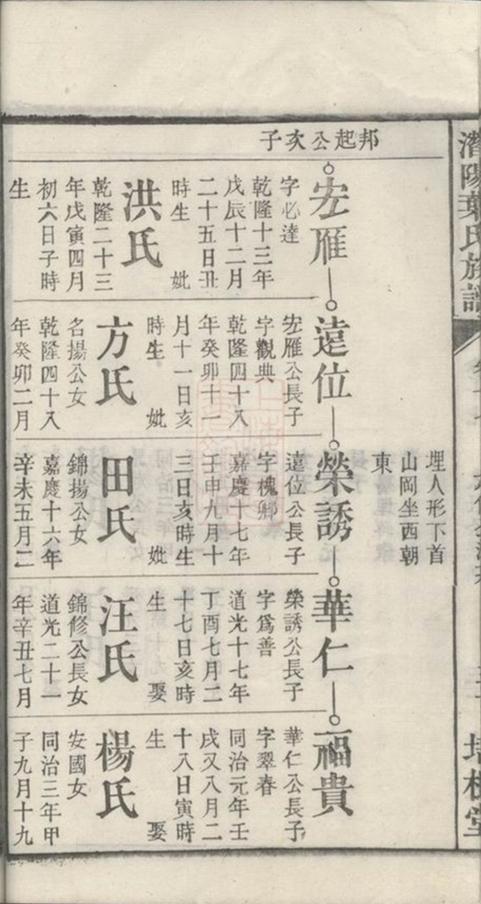 邦起公次子
埋人形下首
山岡坐西朝
東
宏雁
字必達
乾隆十三年
戊辰十二月
二十五日丑
時生 妣
洪氏
乾隆二十三
年戊寅四月
初六日子時
生
遠位
宏雁公長子
字觀典
乾隆四十八
年癸卯十一
月十一日亥
時生 妣
方氏
名揚公女
乾隆四十八
年癸卯二月
榮誘
遠位公長子
字槐卿
嘉慶十七年
壬申九月十
三日亥時生
田氏
錦揚公女
嘉慶十六年
辛未五月二
華仁
榮誘公長子
字爲善
道光十七年
丁酉七月二
十七日亥時
生 娶
汪氏
錦修公長女
道光二十一
年辛丑七月
福貴
華仁公長子
字翠春
同治元年壬
戌又八月二
十八日寅時
生 娶
楊氏
安國女
同治三年甲
子九月十九